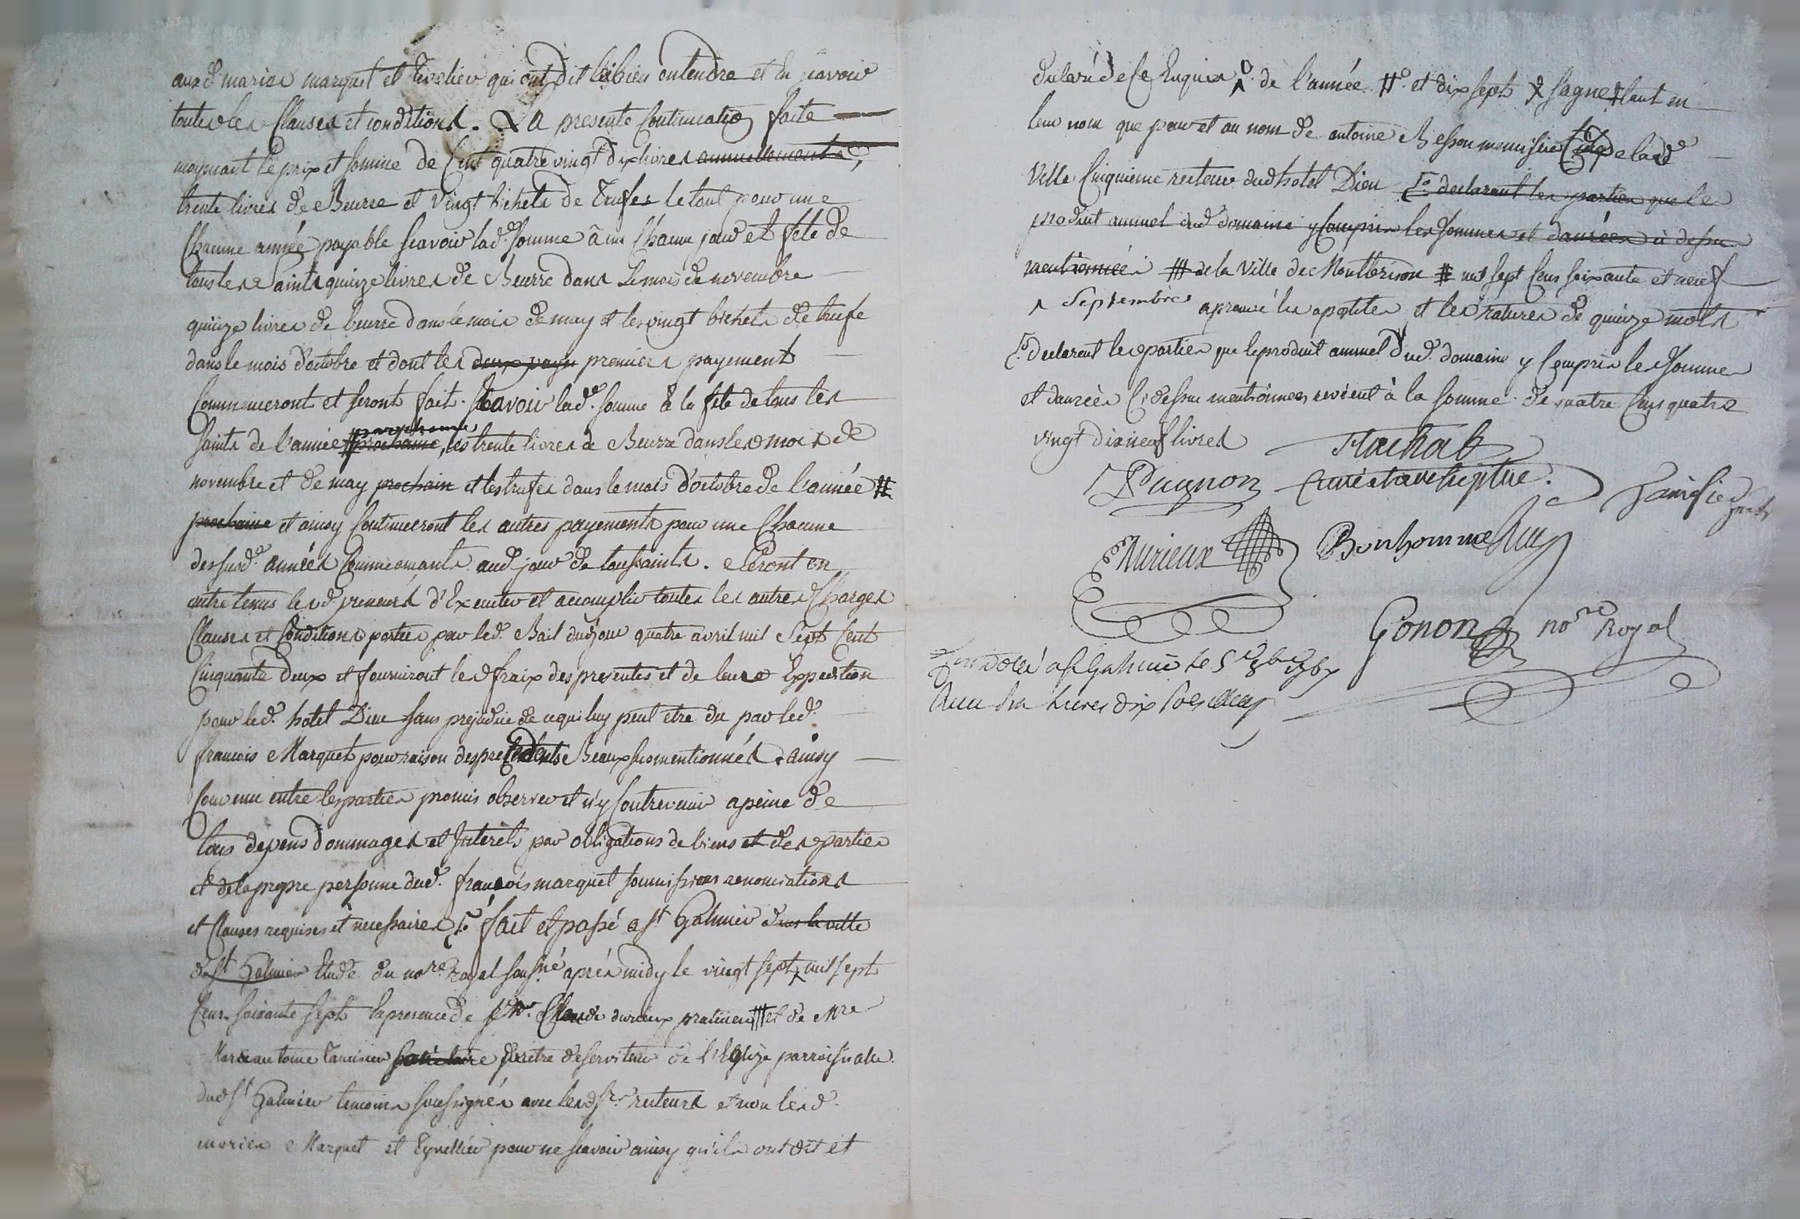 aux d. mariés marquet et Eyvelier qui ont dit les bien entendre et en scavoir
toutes les Clauses et conditions. La presente Continuation faite
moyenant le prix et somme de Cent quatre vingt dix livres annuellement
trente livres de Beurre et vingt bichets de trufes le tout pour une
Chacune année payable scavoir lad. somme à un Chacun jour et fete de
tous les saints quinze livres de Beurre dans le mois de novembre
quinze livres de beurre dans le mois de may et les vingt bichets de trufe
dans le mois d'octobre et dont les deux premiers payements
Commenceront et seront fait. scavoir lad. somme à la fete de tous les
saints de l'année prochaine, les trente livres de Beurre dans les mois de
novembre et de may prochain et les trufes dans le mois d'octobre de l'année #
prochaine et ainsy Continueront les autres payements pour une Chacune
des susd. années Commencants aud. jour de toussaints. Seront en
outre tenus lesd. preneurs d'Executer et accomplir toutes les autres Charges
Clauses et Conditions portées par led. Bail dud. jour quatre avril mil Sept Cent
Cinquante deux et fourniront les fraix des presentes et de leurs Expedition
pour led. hotel Dieu sans prejudice de ce qui luy peut etre du par led.
francois Marquet pour raison des precedents Beaux susmentionnés. ainsy
Convenu entre les parties promis observer et n'y Contrevenir a peine de
tous depens dommages et Interets par obligations de biens et des parties
et de la propre personne dud. francois marquet soumissions renonciations
et Clauses requises et necessaires. fait et passé a st Galmier dans la ville
de st Galmier Etude du nore. Royal sousné. après midy le vingt sept mil sept
Cent soixante sept En presence de sr. Claude durieux praticien # et de Mre
Marc antoine Pretre deserviteur de l'Eglize parroissiale
dud. st Galmier temoins soussignés avec lesd. srs. recteurs et non lesd.
mariés Marquet et Eyvellier pour ne scavoir ainsy qu'ils ont dit et
declaré de ce Enquis. de l'année #. et dix sept tant en
leur nom que pour et au nom de antoine Besson de lad.
Ville Cinquieme recteur dud. hotel Dieu declarent les parties que le
produit annuel dud. domaine y Compris les sommes et danrées cy dessus
mentionnée # de la Ville de Montbrison # mil sept Cens soixante et neuf
septembre aprouvé les apostiles et les ratures de quinze mots
declarent les parties que le produit annuel dud. domaine y Compris les sommes
et danrées Cy dessus mentionnees revient à la somme de quatre Cens quatre
vingt dix neuf livres Flachat
Pugnon Curé
Durieux Bonhomme
Gonon nore. Royal
Controllé a st Galmier le 5e 8bre 1767
livres dix sols